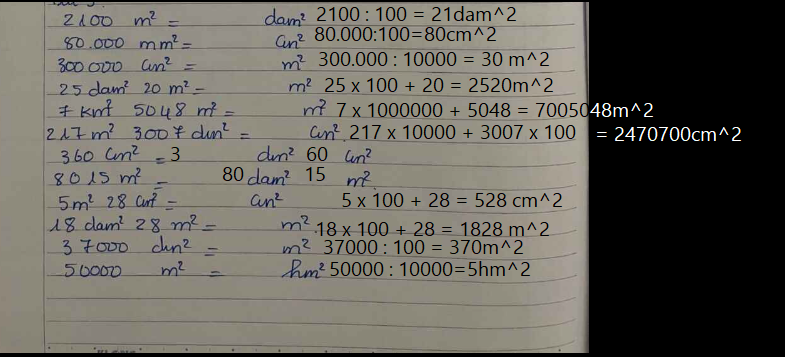 2100 m² = dam² 2100 : 100 = 21dam^2
80.000 mm² = cm² 80.000:100=80cm^2
300 000 cm² = m² 300.000 : 10000 = 30 m^2
25 dam² 20 m² = m² 25 x 100 + 20 = 2520m^2
7 km² 5048 m² = m² 7 x 1000000 + 5048 = 7005048m^2
217 m² 3007 dm² = cm² 217 x 10000 + 3007 x 100 = 2470700cm^2
360 cm² = 3 dm² 60 cm²
8015 m² = 80 dam² 15 m²
5m² 28 cm² = cm² 5 x 100 + 28 = 528 cm^2
18 dam² 28 m² = m² 18 x 100 + 28 = 1828 m^2
37000 dm² = m² 37000 : 100 = 370m^2
50000 m² = hm² 50000 : 10000=5hm^2